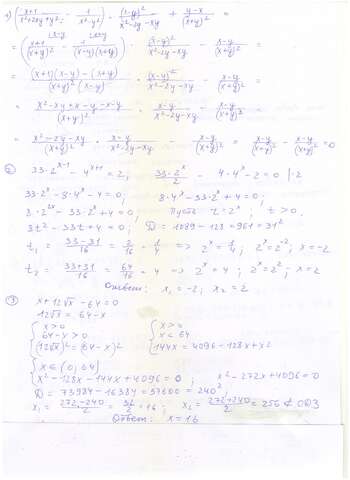 1) ((x+1)/(x²+2xy+y²) - 1/(x²-y²)) · (x-y)²/(x²-2y-xy) + (y-x)/(x+y)² =
= ((x+1)/(x+y)² - 1/((x-y)(x+y))) · (x-y)²/(x²-2y-xy) - (x-y)/(x+y)² =
= ((x+1)(x-y) - (x+y))/((x+y)²(x-y)) · (x-y)²/(x²-2y-xy) - (x-y)/(x+y)² =
= (x²-xy+x-y-x-y)/(x+y)² · (x-y)/(x²-2y-xy) - (x-y)/(x+y)² =
= (x²-2y-xy)/(x+y)² · (x-y)/(x²-2y-xy) - (x-y)/(x+y)² = (x-y)/(x+y)² - (x-y)/(x+y)² = 0
2) 33·2^(x-1) - 4^(x+1) = 2; 33·2^x/2 - 4·4^x - 2 = 0 |·2
33·2^x - 8·4^x - 4 = 0; 8·4^x - 33·2^x + 4 = 0;
8·2^(2x) - 33·2^x + 4 = 0; Пусть t = 2^x; t > 0.
8t² - 33t + 4 = 0; D = 1089 - 128 = 961 = 31²
t₁ = (33-31)/16 = 2/16 = 1/4 => 2^x = 1/4; 2^x = 2^(-2); x = -2
t₂ = (33+31)/16 = 64/16 = 4 => 2^x = 4; 2^x = 2²; x = 2
Ответ: x₁ = -2; x₂ = 2
3) x + 12√x - 64 = 0
12√x = 64 - x
{ x > 0 { x > 0
64 - x > 0 x < 64
(12√x)² = (64-x)² 144x = 4096 - 128x + x²
{ x ∈ (0; 64)
x² - 128x - 144x + 4096 = 0; x² - 272x + 4096 = 0
D = 73984 - 16384 = 57600 = 240²
x₁ = (272-240)/2 = 32/2 = 16; x₂ = (272+240)/2 = 256 ∉ ОДЗ
Ответ: x = 16